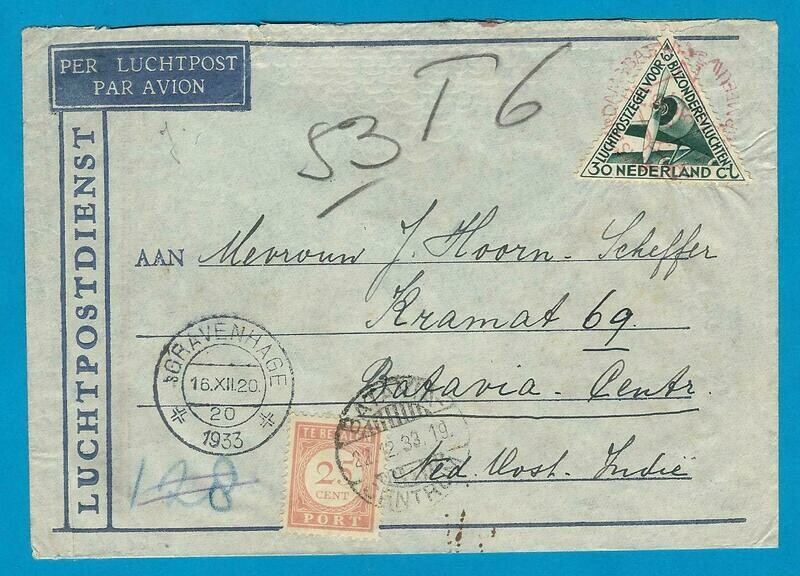 PER LUCHTPOST
PAR AVION
LUCHTPOSTDIENST
53
T 6
LUCHTPOSTZEGEL VOOR
BIJZONDERE VLUCHTEN
30 NEDERLAND CT
AAN Mevrouw J. Hoorn-Scheffer
Kramat 69.
Batavia-Centr.
Ned. Oost-Indië
'sGRAVENHAGE
16.XII.20
20
1933
128
TE BE
2
CENT
PORT
BATAVIA
12.33.19
CENTRUM